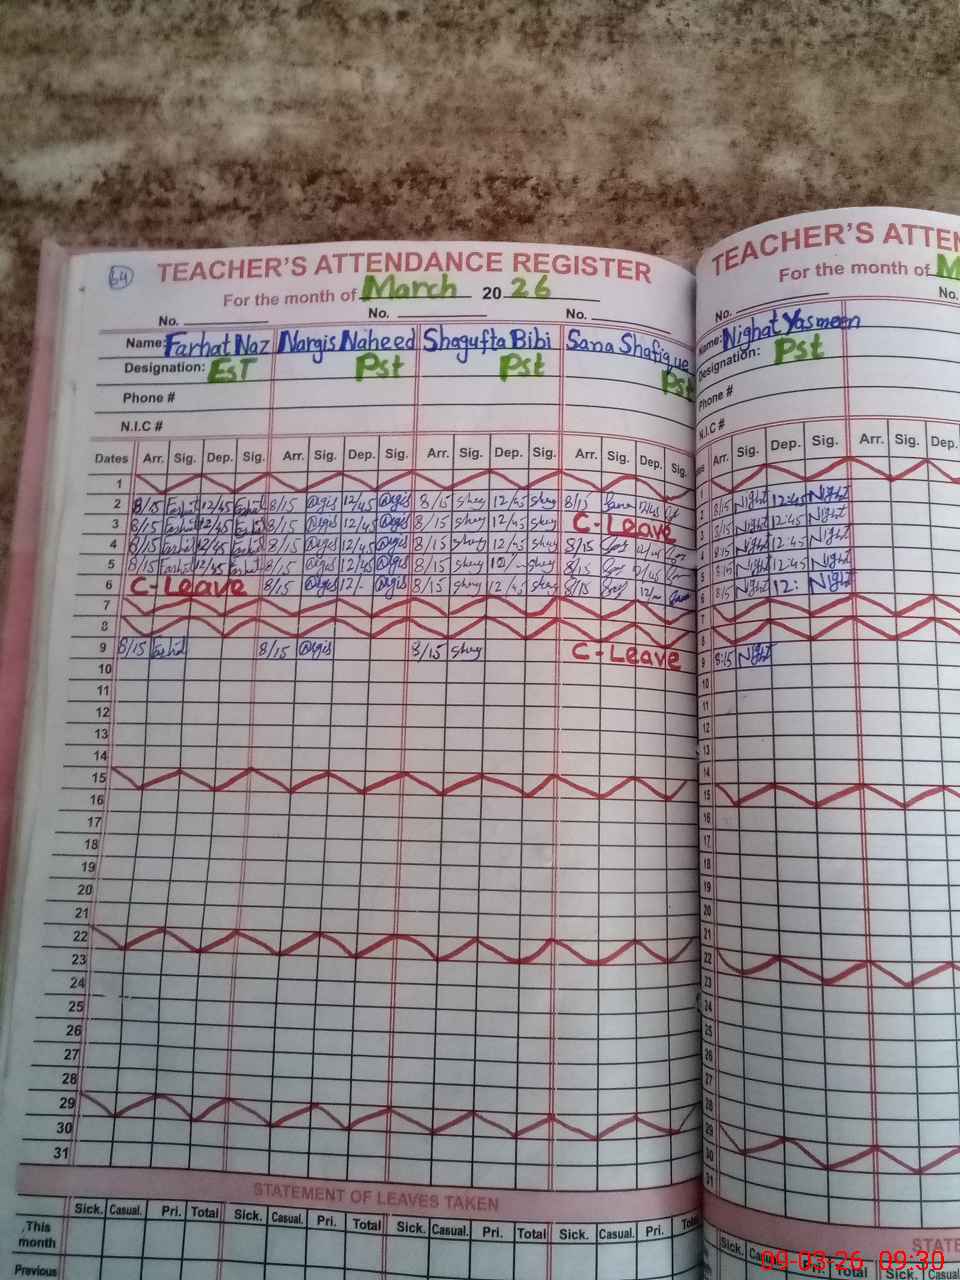 64
TEACHER'S ATTENDANCE REGISTER
For the month of March 2026
No. No. No.
Name: Farhat Naz Nargis Naheed Shagufta Bibi Sana Shafique
Designation: EST Pst Pst Pst
Phone #
N.I.C #
Dates Arr. Sig. Dep. Sig. Arr. Sig. Dep. Sig. Arr. Sig. Dep. Sig. Arr. Sig. Dep. Sig.
1
2 8/15 12/45 8/15 12/45 8/15 12/45 8/15 12/45
3 8/15 12/45 8/15 12/45 8/15 12/45 C-Leave
4 8/15 12/45 8/15 12/45 8/15 12/45 8/15 12/45
5 8/15 12/45 8/15 12/45 8/15 8/15 12/45
6 C-Leave 8/15 8/15 12/45 8/15
7
8
9 8/15 8/15 8/15 C-Leave
10
11
12
13
14
15
16
17
18
19
20
21
22
23
24
25
26
27
28
29
30
31
STATEMENT OF LEAVES TAKEN
Sick. Casual. Pri. Total Sick. Casual. Pri. Total Sick. Casual. Pri. Total Sick. Casual. Pri. Total
This month
Previous
TEACHER'S ATTEN
For the month of M
No. No.
Name: Nighat Yasmeen
Designation: Pst
Phone #
N.I.C #
Arr. Sig. Dep. Sig. Arr. Sig. Dep.
1
2 8/15 Night 12:45 Night
3 8/15 Night 12:45 Night
4 8/15 Night 12:45 Night
5 8/15 Night 12:45 Night
6 8/15 Night 12: Night
7
8
9 8:15 Night
10
11
12
13
14
15
16
17
18
19
20
21
22
23
24
25
26
27
28
29
30
31
STATE
Sick. Pri. Total Sick. Casual
09-03-26 09:30